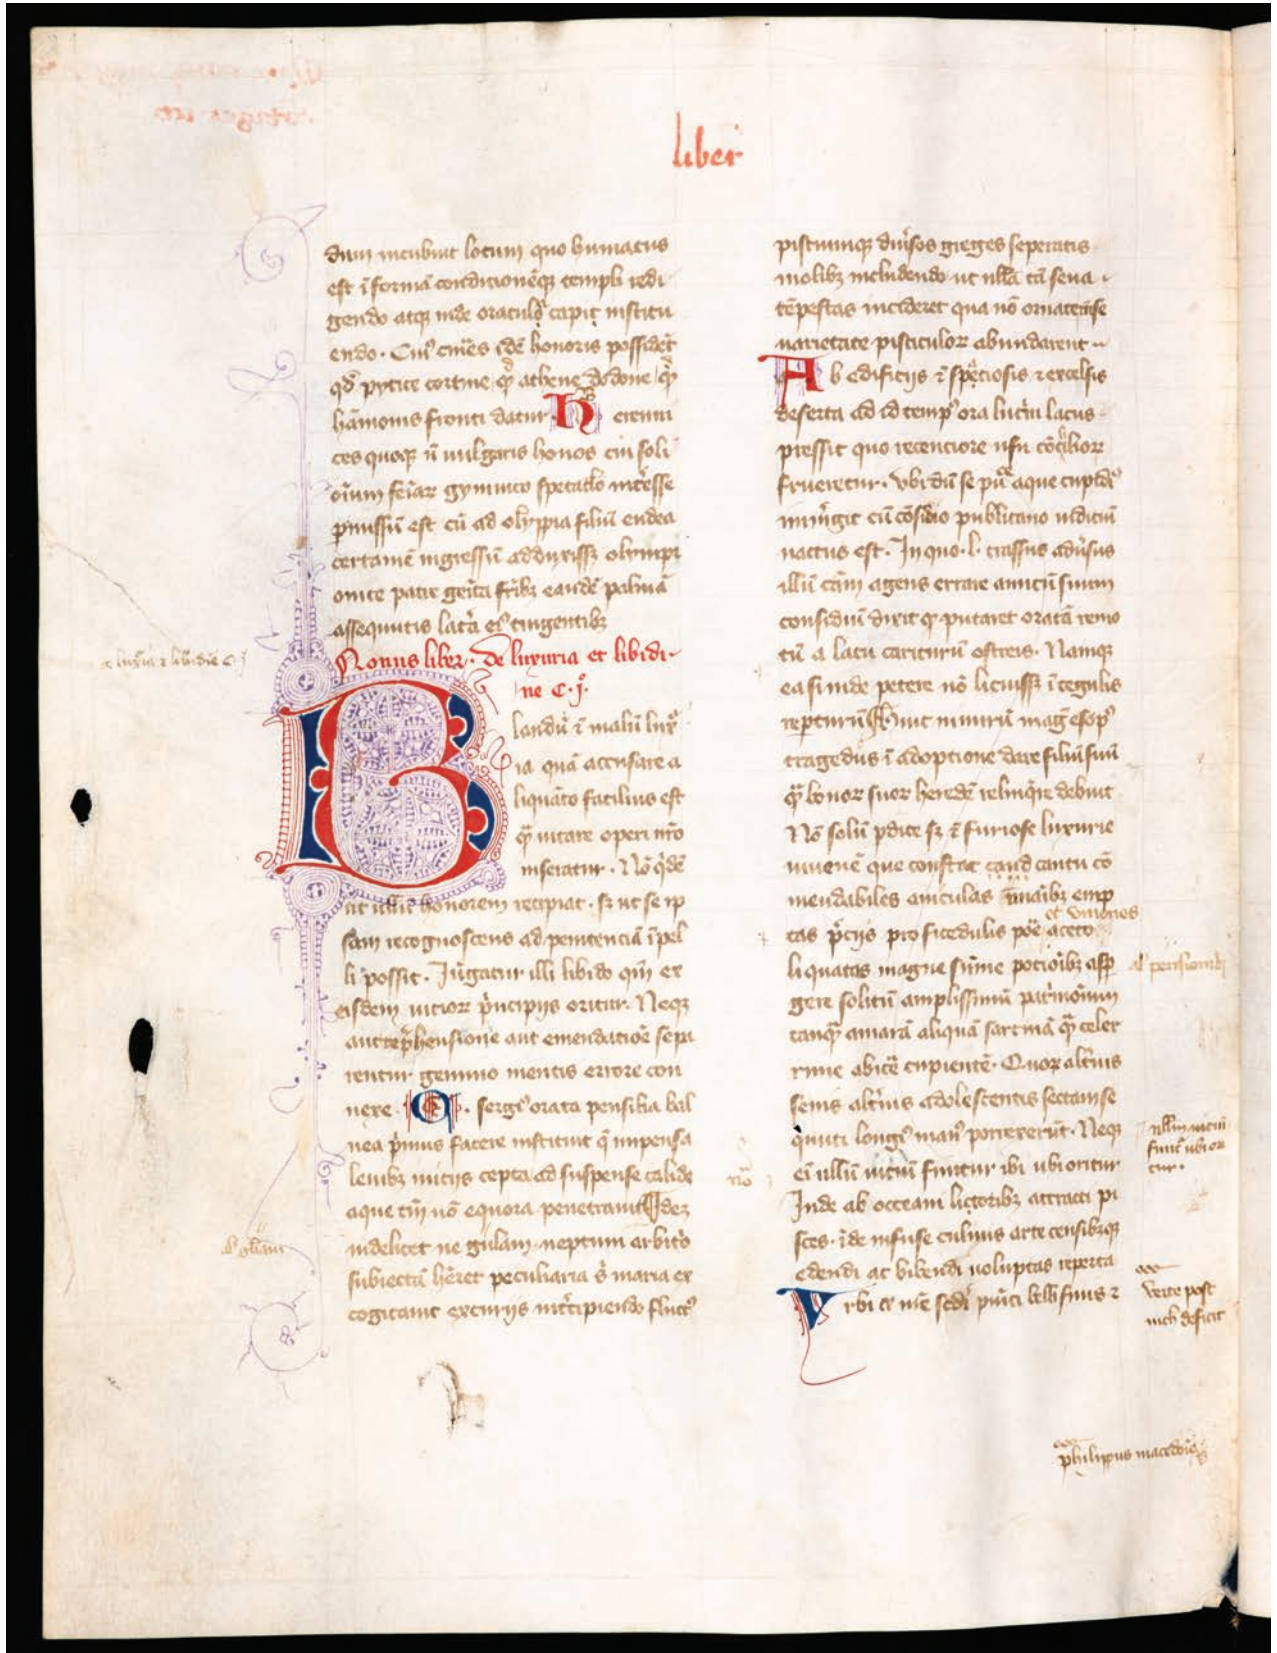 liber
dum incubuit locum quo humatus
est ī formā conditionēqꝫ templi redi
gendo atqꝫ inde oraculoꝝ capiē institu
endo. Cuiꝰ cinēs idē honoris possidēt
qd̄ pytice cortine qd̄ athene dodone qd̄
hāmonis fronti datur. H erenni
ces quoqꝫ n̄ uulgaris honos cui soli
oīum feīaꝝ gymnico spectaclō int̄esse
pmissū est cū ad olympia filiū euclea
certamē ingressū adduxissꝫ olympi
onice patre genita frībꝫ eandē palmā
assequutis lat̄a eiꝰ cingentibꝫ
a luxuria ⁊ libidie C. j
Nonus liber. De luxuria et libidi
ne C. j.
Blandū ē malū luxᷣ
ia quā accusare a
liquāto facilius est
qᷓ uitare operi nr̄o
inseratur. Nō q̇dē
ut ullū honorem recipiat. sꝫ ut se ip
sam recognoscens ad penitenciā īpel
li possit. Iūgatur illi libido qm̄ ex
eisdem uicioꝝ p̄ncipijs oritur. Neqꝫ
aut rep̄hensione aut emendatiōe sepa
rentur gemino mentis errore con
nexe. C. sergiꝰ orata pensilia bal
nea p̄mus facere instituit q̄ impensa
leuibꝫ initijs cepta ad suspense calide
aque tm̄ nō equora penetrauit Idez
uidelicet ne gulam neptuni arbit̄o
subiectā hēret peculiaria s̄ maria ex
cogitauit excurijs int̄cipiendo fluctꝰ
pisciumqꝫ diūsos greges seperatis
molibꝫ includendo ut nlla tā seua
tēpestas incideret qua nō ornate mēse
uarietate pisciculoꝝ abundarent
A b edificijs ē spēciosis ⁊ excelsis
deserta ad id tempꝰ ora lucrin lacus
pressit quo recenciore usu cōchiliorꝝ
frueretur. Vbi dū se pub̄ aque cupidiꝰ
inm̄git cū cōsidio publicano iudiciū
nactus est. In quo. l. crassus adūsus
illū cām agens errare amicū suum
considiū dixit qꝫ putaret oratā remo
tū a lacu cariturū ostreis. Namqꝫ
ea si inde petere nō licuissꝫ ī tegulis
repturū Huic nimirū mag̃ esopꝰ
tragedus ī adoptione dare filiū suū
qᷓ bonoꝝ suoꝝ heredē relinq̄re debuit
Nō solū pdite sꝫ ē furiose luxurie
iuuenē quē constat cantu cō
mendabiles auiculas īmāibꝫ emp
tas p̄cijs pro ficedulis poē aceto
et uniones
liquatas magne sūme potiōibꝫ asp
gere solitū amplissimū patrimoniū
tanqᷓ amarā aliquā sarcinā qᷓ celer
rime abicē cupientē. Quoꝝ alt̄ius
senis alt̄ius adolescentis sectam se
quuti longiꝰ manꝰ porrexerūt. Neqꝫ
ei ullū uiciū finitur ibi ubi oritur
Inde ab occeani lictoribꝫ attracti pi
sces. īde infuse culinis arte censibꝫqꝫ
edendi ac bibendi uoluptas reperta
V rbi at nre scdi punici belli finis ⁊
nō
nllm uiciū
finit̄ ubi ori
tur.
uerte post
nich deficit
philippus macedoiꝫ